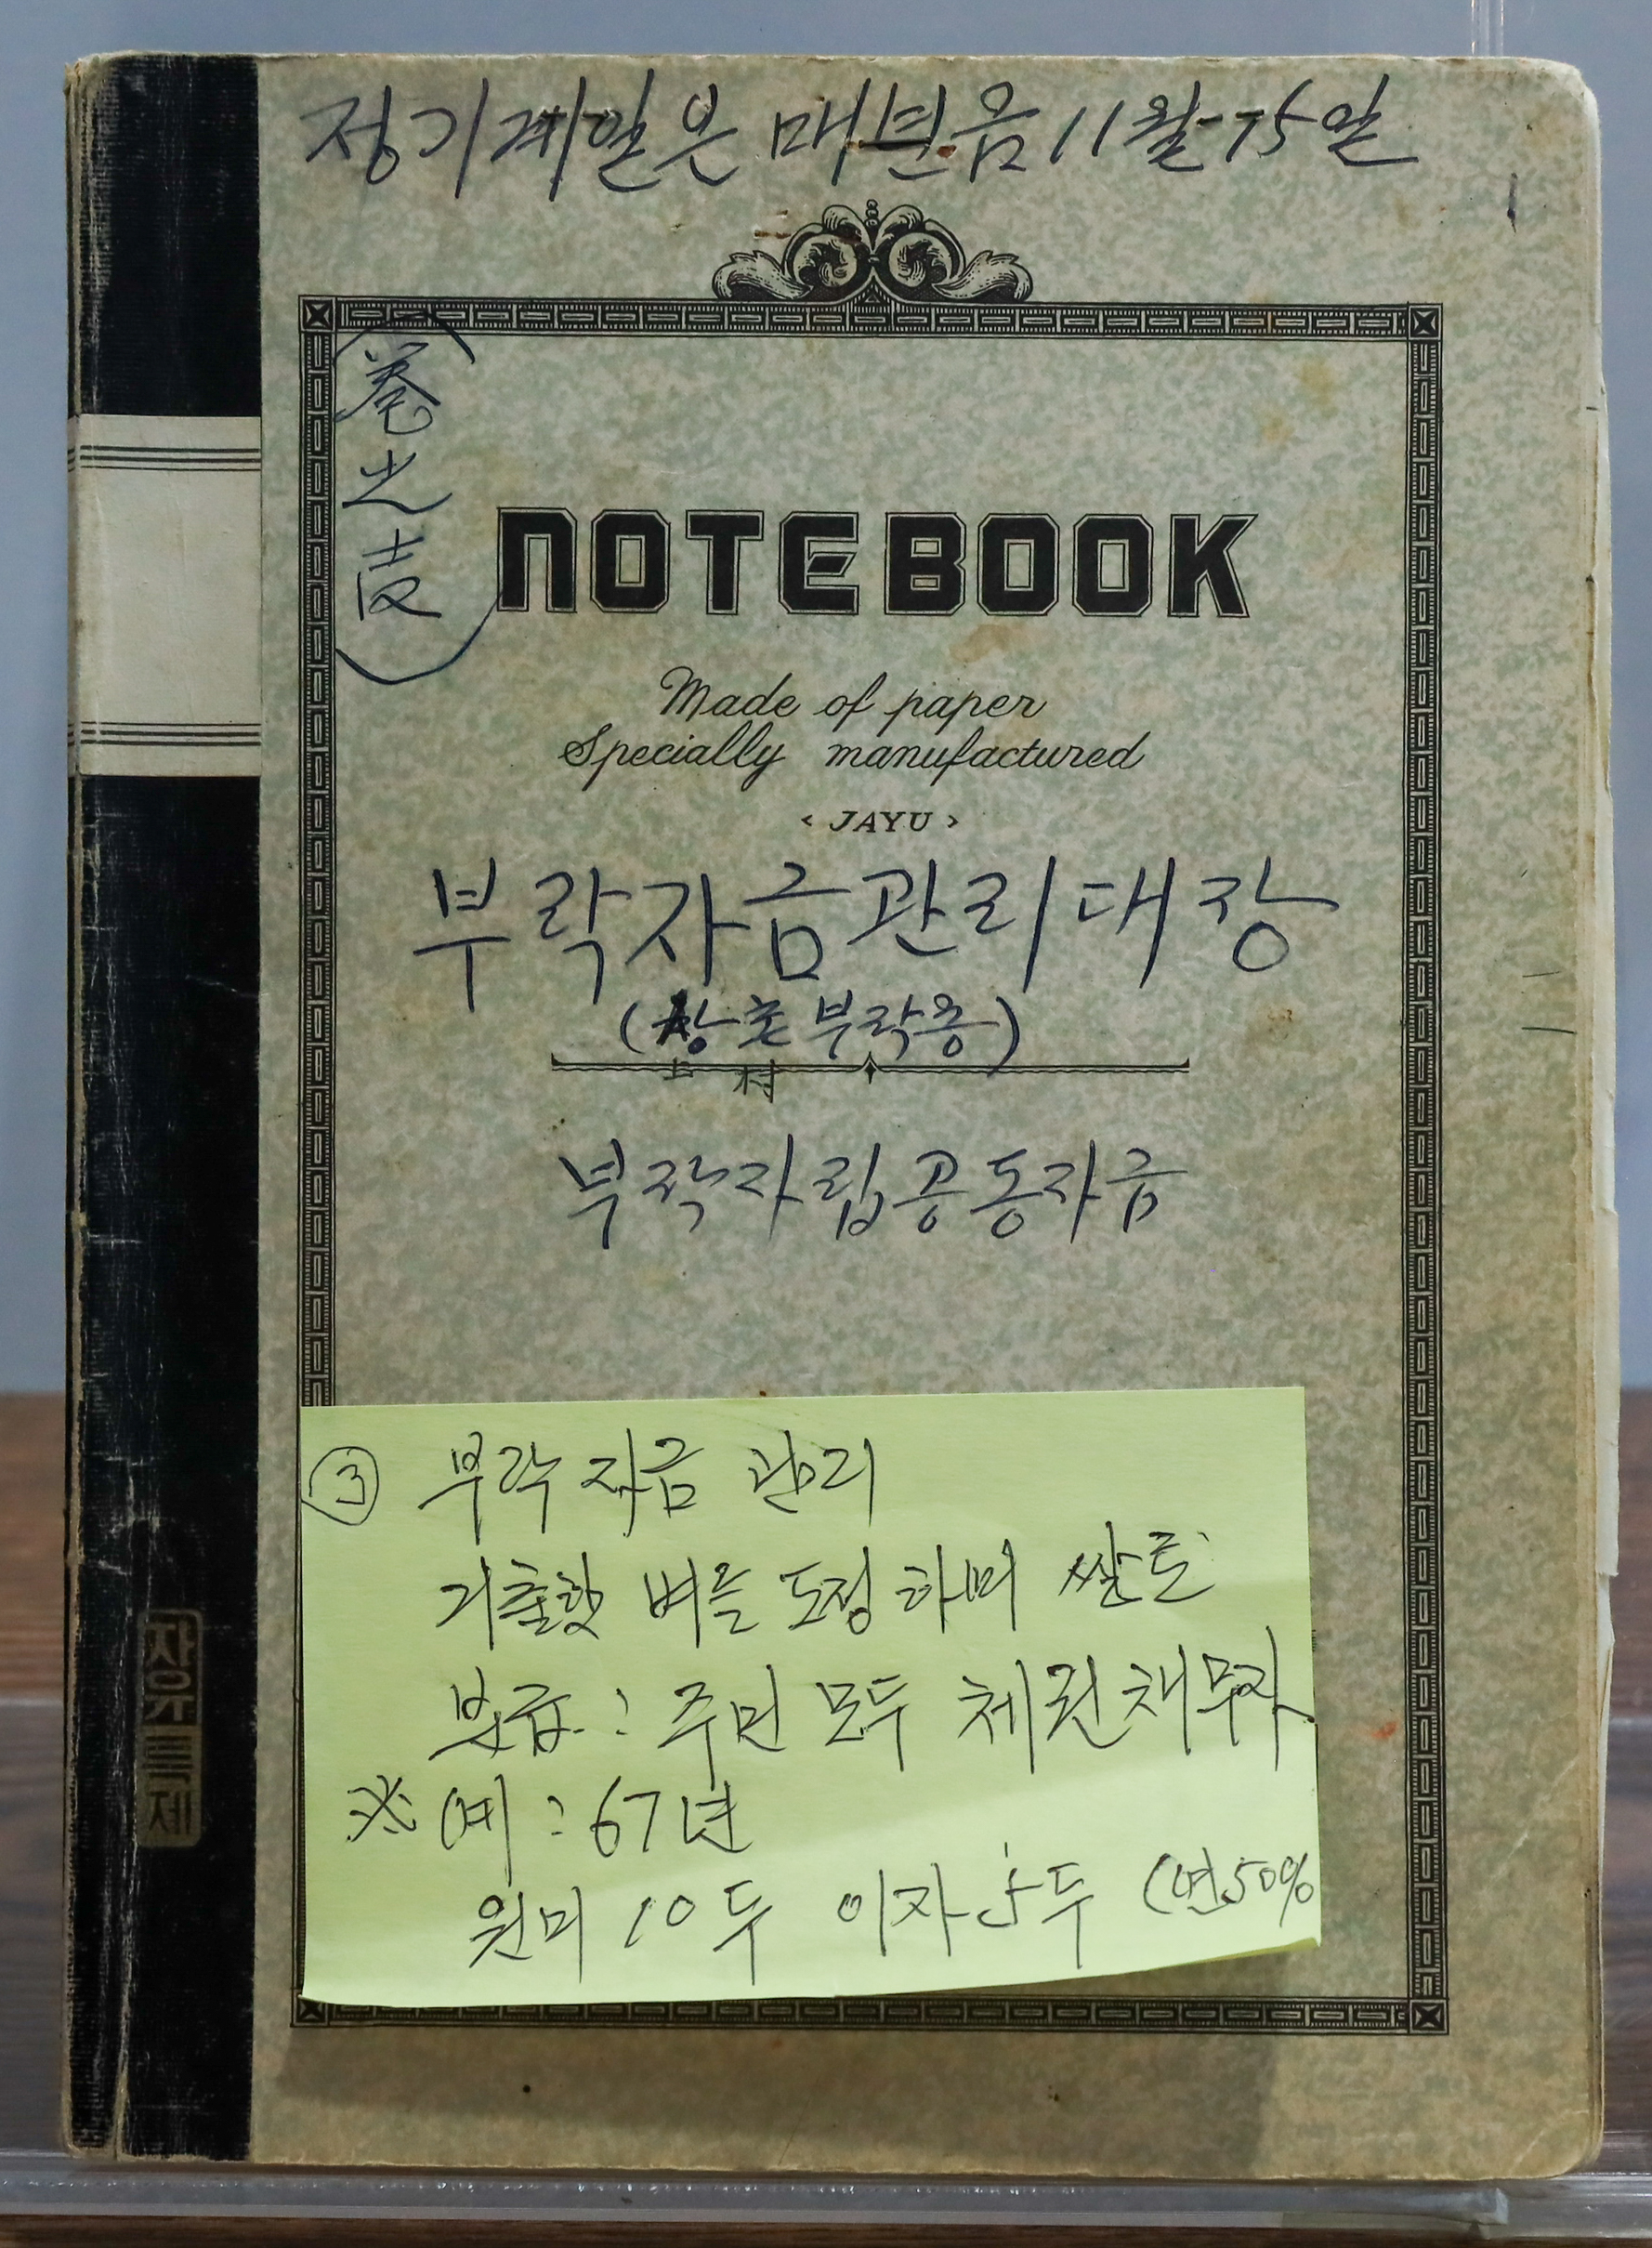 정기계일은 매년음 11월 15일
(卷之壹)
NOTEBOOK
Made of paper
Specially manufactured
< JAYU >
부락자금관리대장
(상촌부락용)
上村
부락자립공동자금
③ 부락 자금 관리
기출한 벼를 도정하며 쌀로
보급 : 주민 모두 체권채무자
※ 예 : 67년
원미 10두 이자 5두 (연50%
자유특제